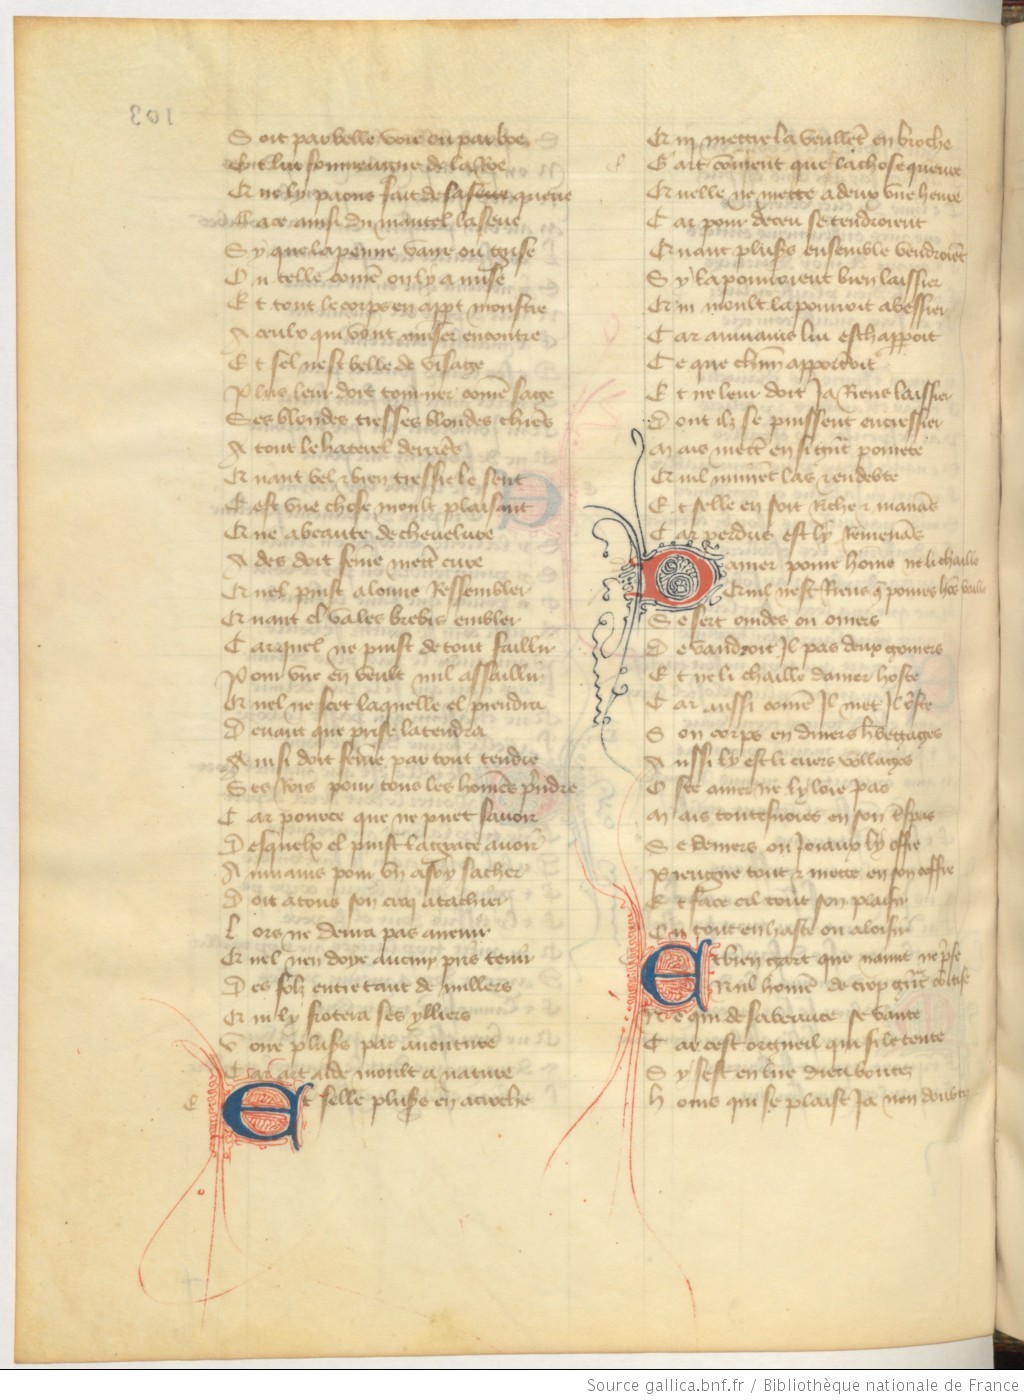 103
Soit par belle voie ou par boe
Et lui souviengne de la roe
Qr ne ly paons fait de sa queue
Face ainsi du mantel la seue
Sy que la penne vaire ou grise
Ou telle com̃e on ly a mise
Et tout le corps en appt monstre
A ceulx qui vont muser encontre
Et sel nest belle de visage
Plus leur doit tourner com̃e sage
Ses blondes tresses blondes chiẽs
A tout le haterel derriẽs
Qr nant bel & bien tressie le sent
Cest vne chose moult plaisant
Qr ne abeaute de cheveleure
A des doit fem̃e mett̃ cure
Qr nel puist a louue Ressembler
Qr nant el va les brebis embler
Car quel ne puist de tout faillir
Pour vne en veult mil assaillir
Qr nel ne scet laquelle el prendra
Deuant que prise la tendra
Ainsi doit fem̃e par tout tendre
Ses Rois pour tous les hom̃es p̃ndre
Car pource que ne puet sauoir
Desquelx el puist la grace auoir
Amains pour vn a soy sacher
Doit a tous son croq atachier
Lors ne deura pas auenir
Qr nel nen doye aucun pris tenir
Des folz entre tant de milliers
Qr ni ly frotera ses ylliers
Voire plus̃s par auenture
Car art aide moult a nature
Et selle plus̃s en acroche
Qr ni mettre la veullet en broche
Gart com̃ent que la chose queure
Qr nelle ne mette a deux vne heure
Car pour deceu se tendroient
Qr nant plus̃s ensemble vendroiẽt
Sy la pourroient bien laissier
Qr ni moult la pourroit abessier
Car amains lui eschappoit
Ce que chũn apportoit
Et ne leur doit Ja Riens laissier
Dont ilz se puissent encressier
Mais mett̃ en si gñt pourete
Qr uil muirẽt las & endebte
Et selle en soit Riche & manãs
Car perdus est ly Remenãs
Damer poure home ne li chaille
Qr uil nest Riens q̃ poures hõs vaille
Se fert ouides ou omers
Ne vandroit Il pas deux gomers
Et ne li chaille damer hoste
Car aussi com̃e Il met Il oste
Son corps en diuers h̾bertages
Aussi ly est li cuers vollages
Oste amer ne ly loe pas
Mais toutesuoies en son t̃spas
Se deniers ou Joiaux ly offre
Preigne tout & mette en son coffre
Et face cil tout son plaisir
Ou tout en haste ou a loisir
Et bien gart que naimt ne prise
Nul hom̃e de trop gñt cointise
Ne qui de sa beaute se vante
Car cest orgueil qui si le tente
Sy sest en lire dieu boutez
Homs qui se plaist Ja nen doubtez
Source gallica.bnf.fr / Bibliothèque nationale de France